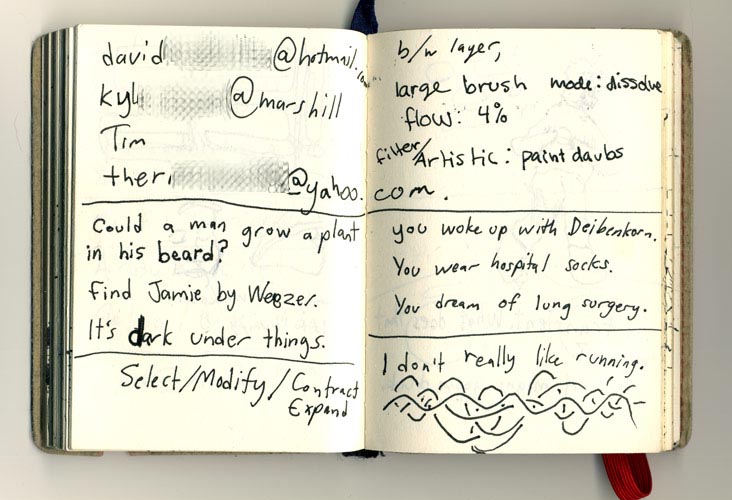 david @hotmail.com
kyl @marshill
Tim
ther @yahoo.
Could a man grow a plant
in his beard?
find Jamie by Weezer.
It's dark under things.
Select/Modify/Contract
Expand
b/w layer,
large brush mode: dissolve
flow: 4%
filter/Artistic: paint daubs
com.
you woke up with Deibenkorn.
You wear hospital socks.
You dream of lung surgery.
I don't really like running.